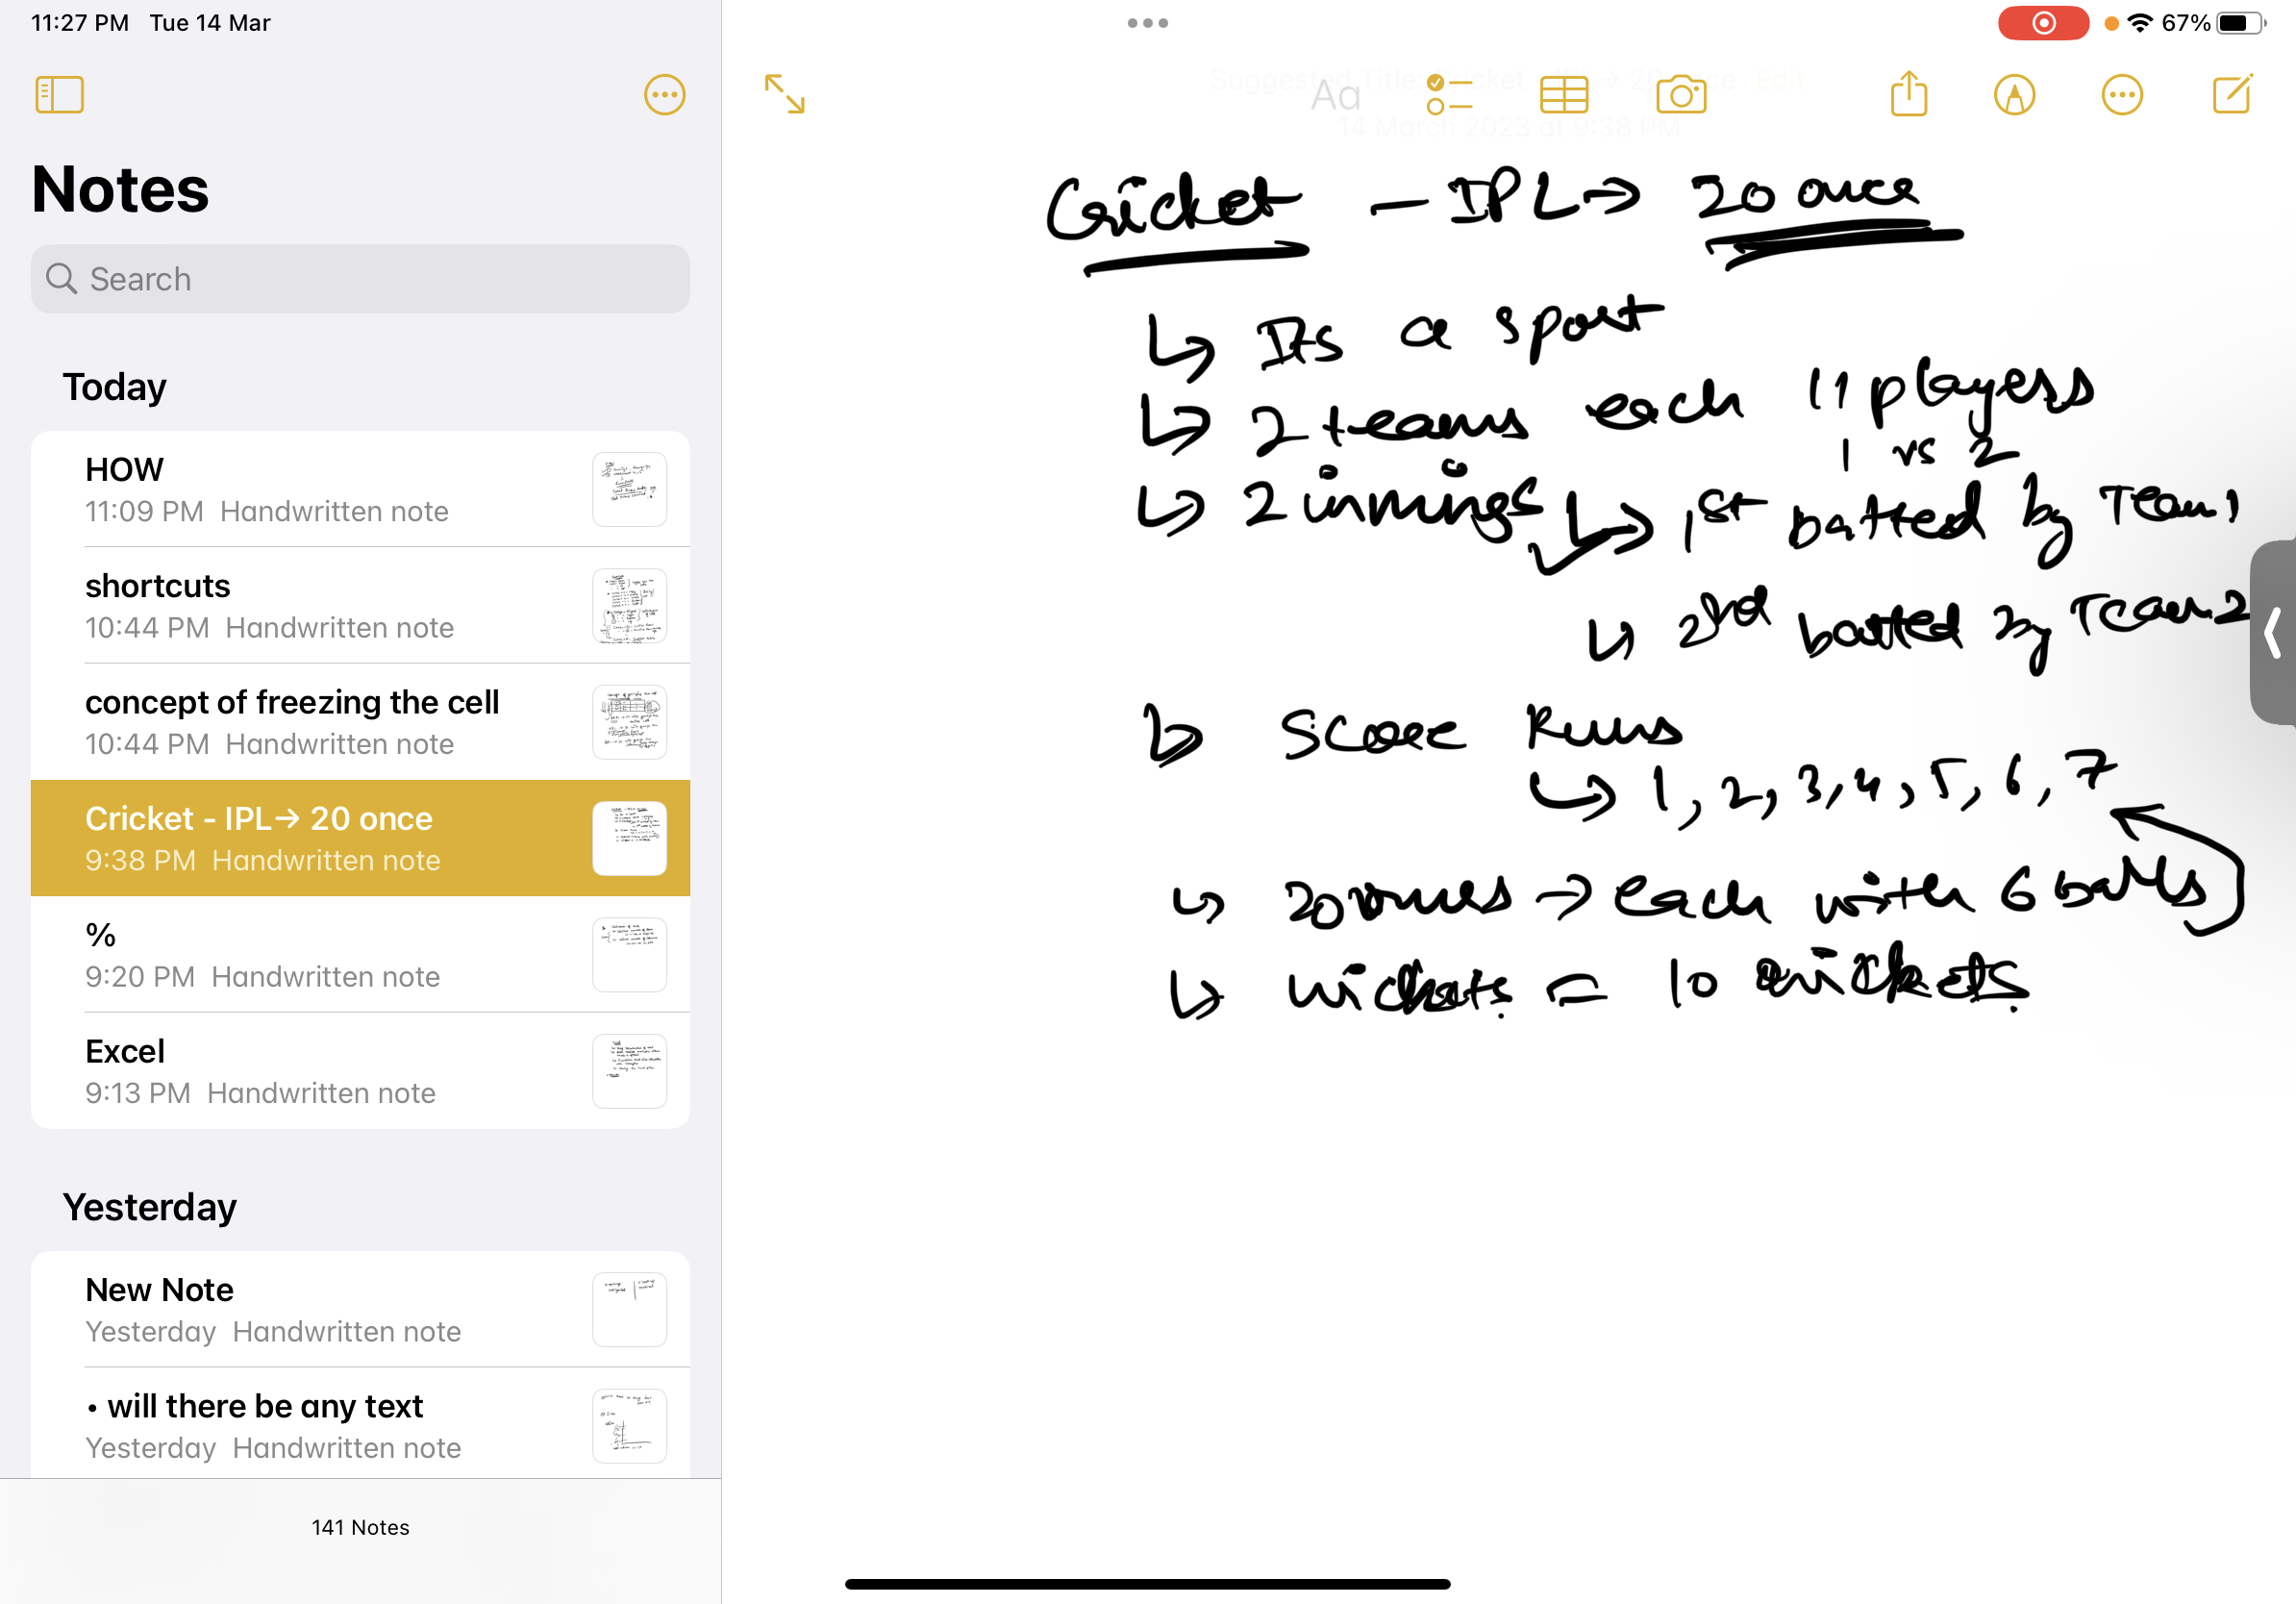 11:27 PM Tue 14 Mar
67%
Notes
Search
Today
HOW
11:09 PM Handwritten note
shortcuts
10:44 PM Handwritten note
concept of freezing the cell
10:44 PM Handwritten note
Cricket - IPL→ 20 once
9:38 PM Handwritten note
%
9:20 PM Handwritten note
Excel
9:13 PM Handwritten note
Yesterday
New Note
Yesterday Handwritten note
• will there be any text
Yesterday Handwritten note
141 Notes
Suggested Title: Cricket - IPL→ 20 once Edit
Aa
14 March 2023 at 9:38 PM
Cricket - IPL → 20 once
↳ Its a sport
↳ 2 teams each 11 players
1 vs 2
↳ 2 innings ↳ 1st batted by Team 1
↳ 2nd batted by Team 2
↳ Score Runs
↳ 1, 2, 3, 4, 5, 6, 7
↳ 20 → each with 6 balls
↳ wickets = 10 wickets.